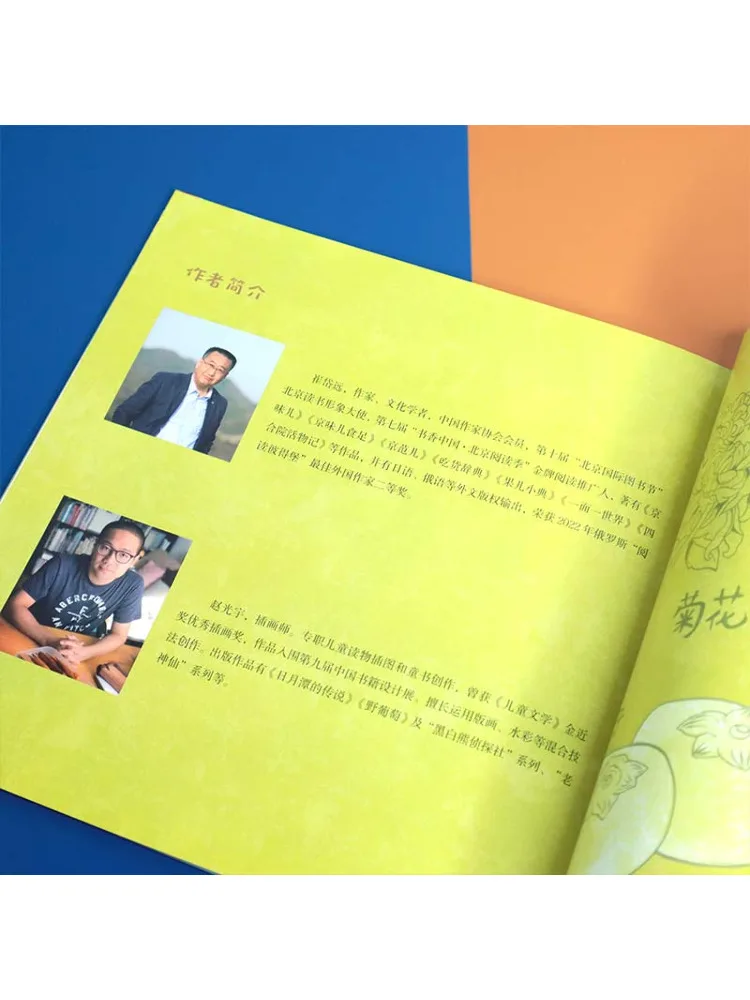 作者简介
崔岱远，作家、文化学者，中国作家协会会员，第十届“北京国际图书节”
北京读书形象大使，第七届“书香中国·北京阅读季”金牌阅读推广人，著有《京
味儿》《京味儿食足》《京范儿》《吃货辞典》《果儿小典》《一面一世界》《四
合院活物记》等作品，并有日语、俄语等外文版权输出，荣获2022年俄罗斯“阅
读彼得堡”最佳外国作家二等奖。
ABERCROMBIE
赵光宇，插画师。专职儿童读物插图和童书创作，曾获《儿童文学》金近
奖优秀插画奖，作品入围第九届中国书籍设计展。擅长运用版画、水彩等混合技
法创作。出版作品有《日月潭的传说》《野葡萄》及“黑白熊侦探社”系列、“老
神仙”系列等。
菊花